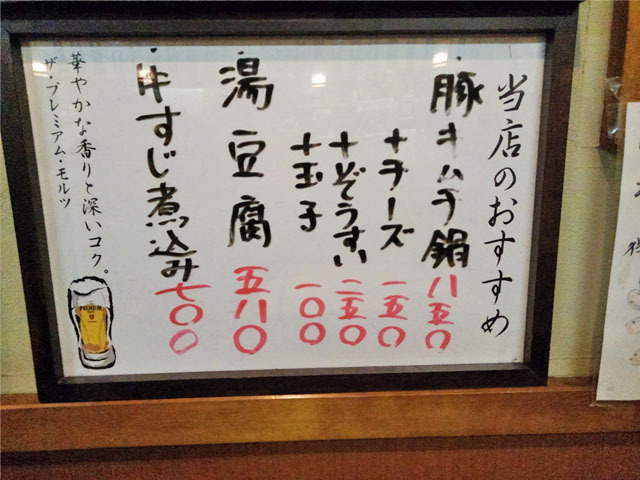 当店のおすすめ
・豚キムチ鍋 八五〇
＋チーズ 一五〇
＋ぞうすい 二五〇
＋玉子 一〇〇
・湯豆腐 五八〇
・牛すじ煮込み 七〇〇
華やかな香りと深いコク。
ザ・プレミアム・モルツ
PREMIUM